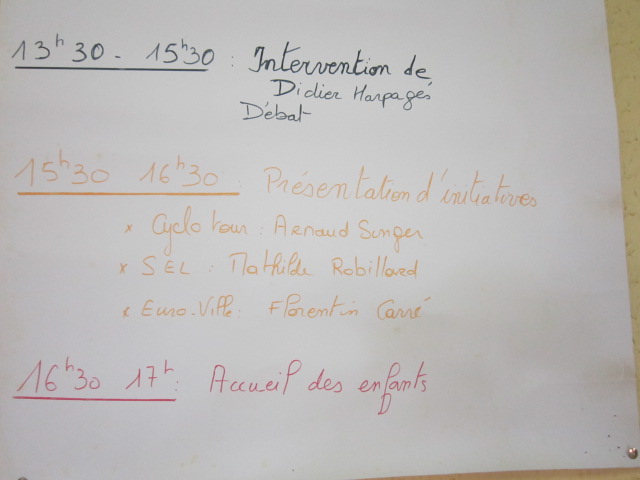 13h30 - 15h30 : Intervention de
Didier Harpagés
Débat
15h30 16h30 : Présentation d'initiatives
x Cyclo tour : Arnaud Singer
x SEL : Mathilde Robillard
x Euro-Ville : Florentin Carré
16h30 17h : Accueil des enfants